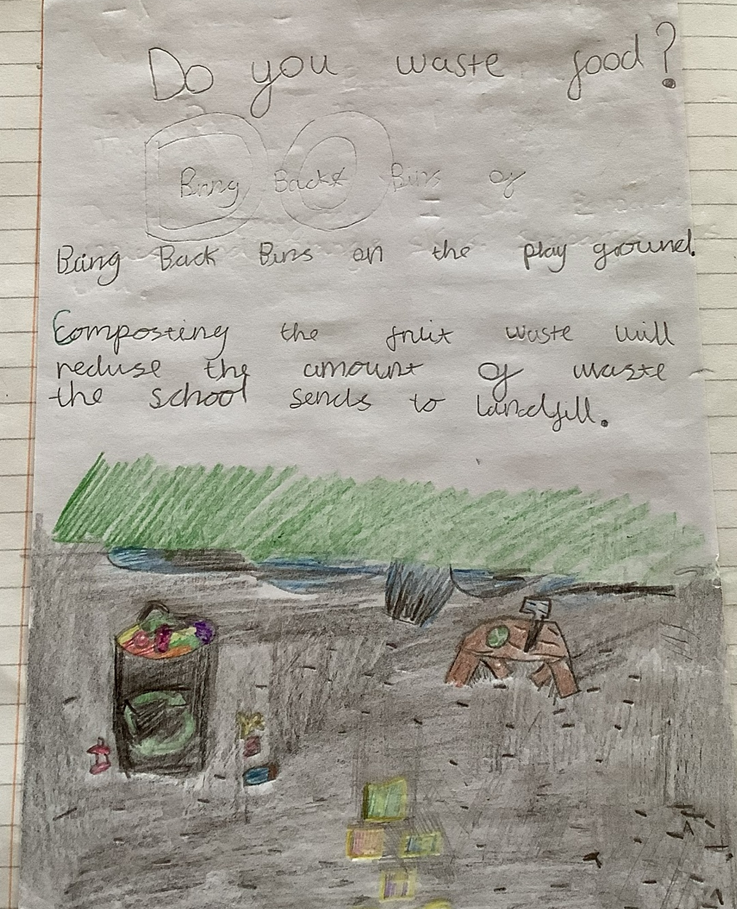 Do you waste food?
Bring Back Bins of
Bring Back Bins on the play ground.
Composting the fruit waste will
reduse the amount of waste
the school sends to landfill.